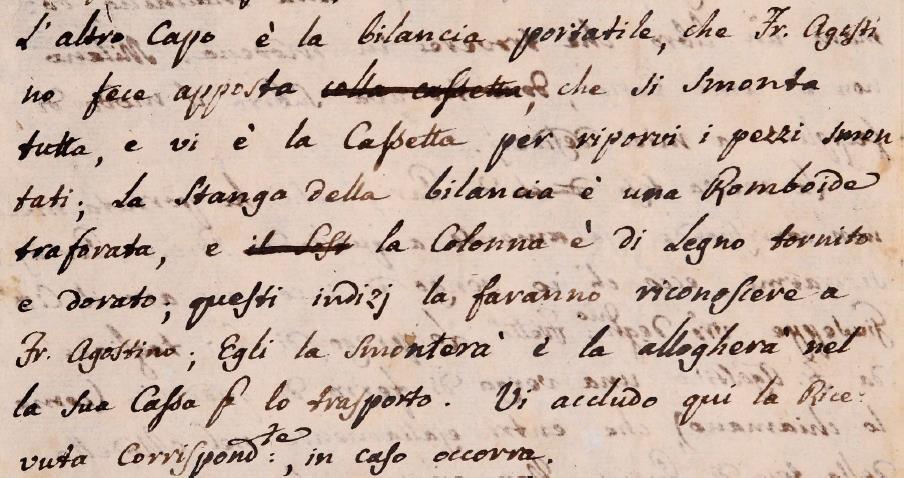 L'altro Capo è la bilancia portatile, che Fr. Agosti
no fece apposta colla cassetta, che si smonta
tutta, e vi è la Cassetta per riporvi i pezzi smon
tati; La Stanga della bilancia è una Romboide
traforata, e il Sost la Colonna è di Legno tornito
e dorato; questi indizj la faranno riconoscere a
Fr. Agostino; Egli la smonterà e la allogherà nel
la sua Cassa p lo trasporto. Vi accludo qui la Rice:
vuta Corrispond:te, in caso occorra.